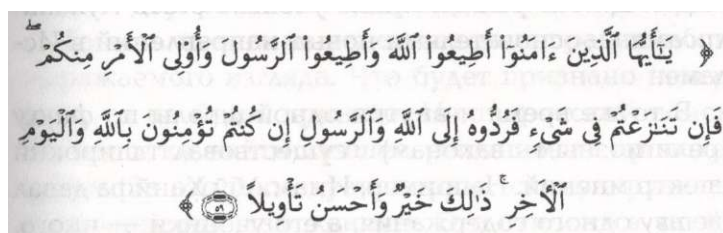 ﴿ يَـٰٓأَيُّهَا ٱلَّذِينَ ءَامَنُوٓا۟ أَطِيعُوا۟ ٱللَّهَ وَأَطِيعُوا۟ ٱلرَّسُولَ وَأُو۟لِى ٱلْأَمْرِ مِنكُمْ ۖ
فَإِن تَنَـٰزَعْتُمْ فِى شَىْءٍ فَرُدُّوهُ إِلَى ٱللَّهِ وَٱلرَّسُولِ إِن كُنتُمْ تُؤْمِنُونَ بِٱللَّهِ وَٱلْيَوْمِ
ٱلْـَٔاخِرِ ۚ ذَٰلِكَ خَيْرٌ وَأَحْسَنُ تَأْوِيلًا ۝٥٩ ﴾